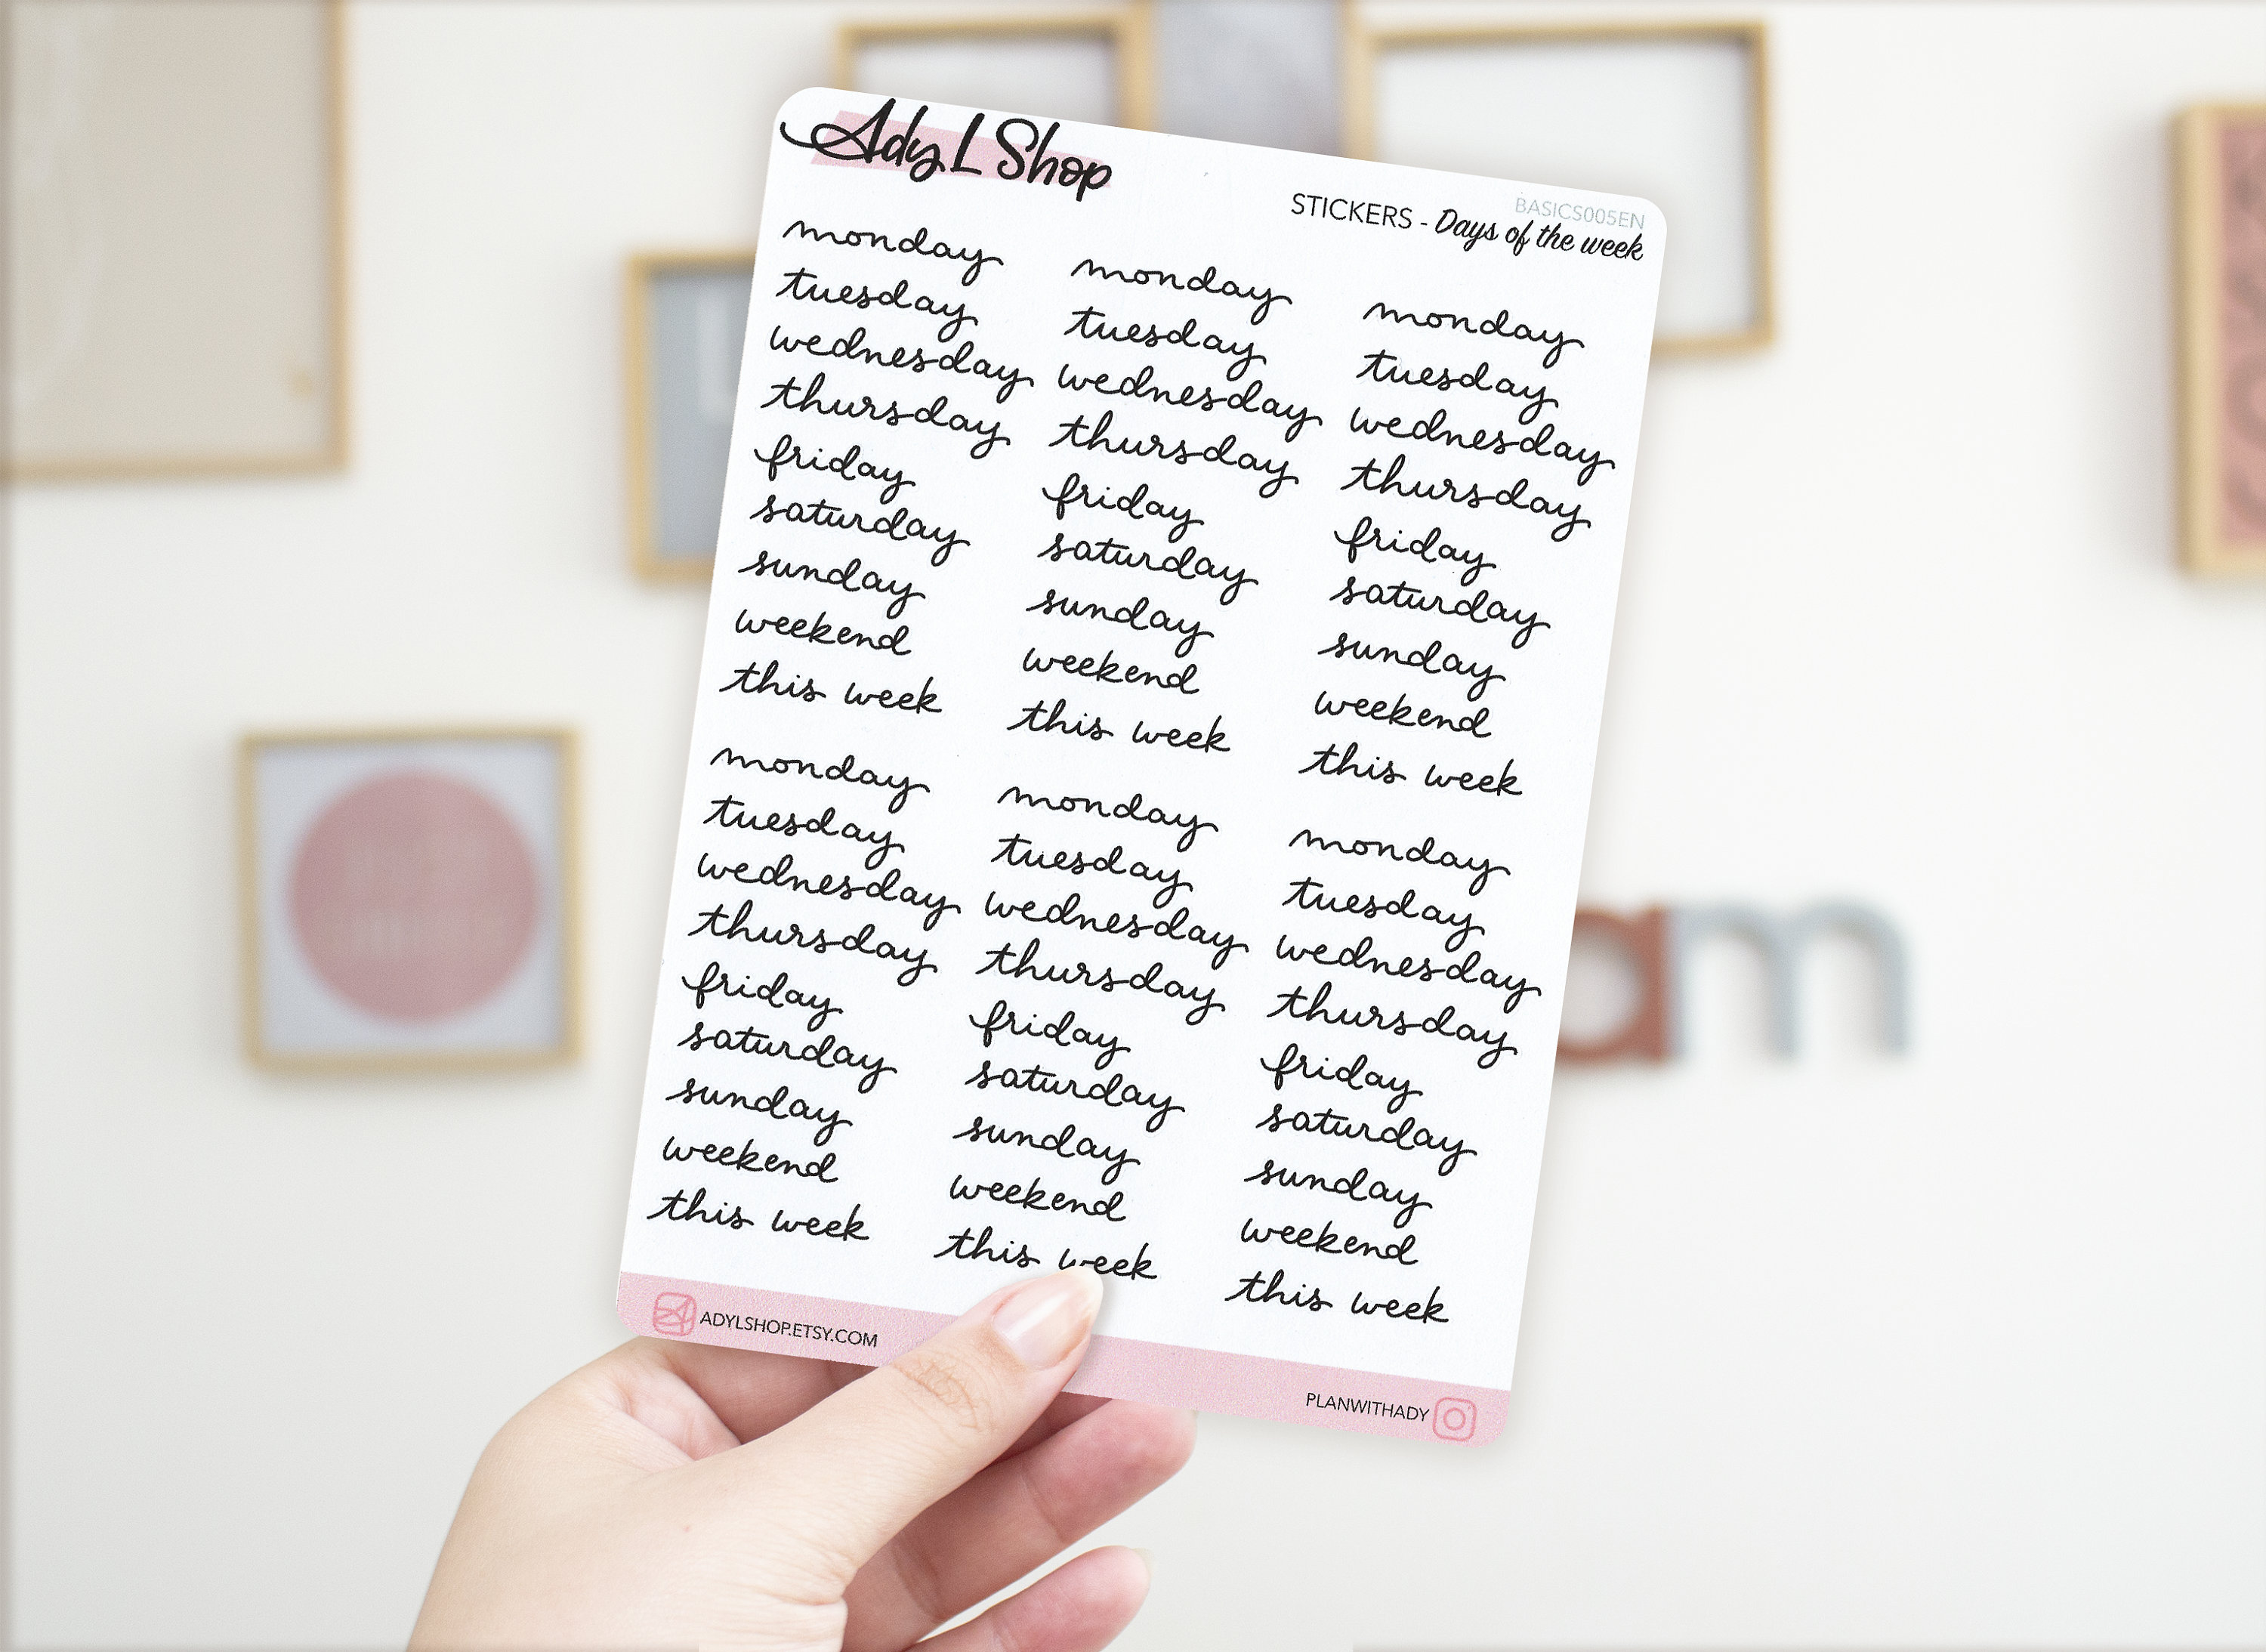 Ady L Shop
BASICS005EN
STICKERS - Days of the week
monday monday monday
tuesday tuesday tuesday
wednesday wednesday wednesday
thursday thursday thursday
friday friday friday
saturday saturday saturday
sunday sunday sunday
weekend weekend weekend
this week this week this week
monday monday monday
tuesday tuesday tuesday
wednesday wednesday wednesday
thursday thursday thursday
friday friday friday
saturday saturday saturday
sunday sunday sunday
weekend weekend weekend
this week this week this week
ADYLSHOP.ETSY.COM
PLANWITHADY
am